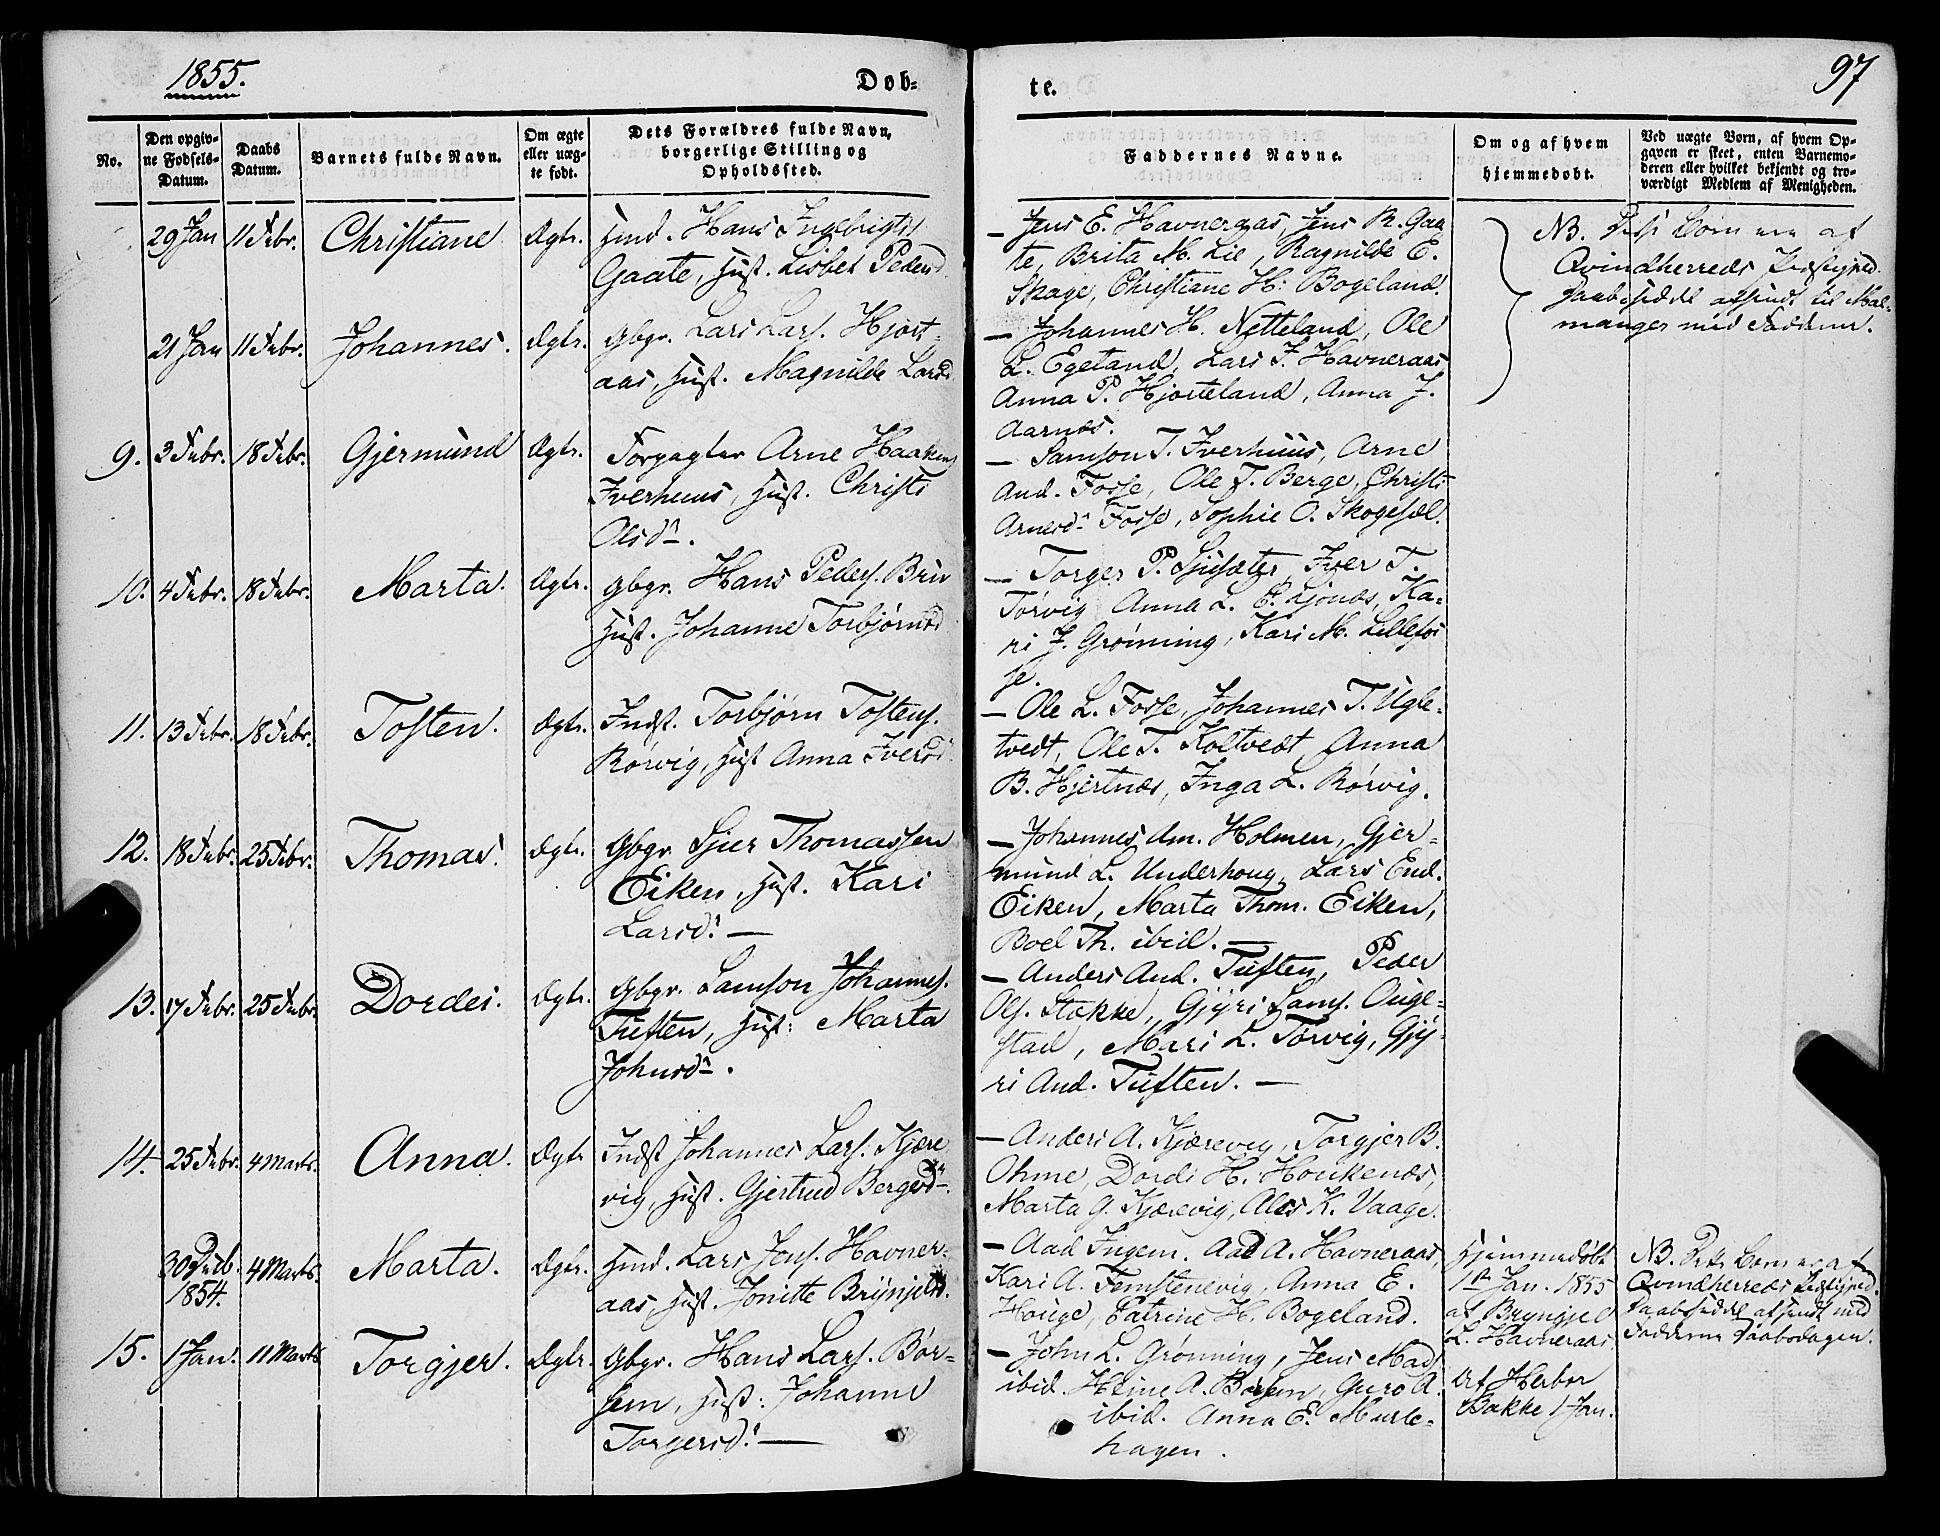 1855.
Døb-
te.
97
No.
Den opgiv-
ne Fødsels-
Datum.
Daabs
Datum.
Barnets fulde Navn.
Om ægte
eller uæg-
te født.
Dets Forældres fulde Navn,
borgerlige Stilling og
Opholdssted.
Faddernes Navne.
Om og af hvem
hjemmedøbt.
Ved uægte Børn, af hvem Op-
gaven er skeet, enten Barnemo-
deren eller hvilket bekjendt og tro-
værdigt Medlem af Menigheden.
29 Jan 11 Febr. Christiane Ægtr. Hans Ingebrigts
Gaate, Hust. Lisbet Pedersd
— Jens E. Havneraas, Jens R. Gaa
te, Brita M. Lie, Ragnilde E.
Skage, Christiane H: Bogeland.
NB. Børn ere af
Qvindherreds Præstegjeld.
Daabsseddel afsendt til Mal-
manger med Fadderne.
21 Jan 11 Febr. Johannes. Ægtr. Gbgr. Lars Lars. Hjort-
aas, Hust. Magnilde Larsd
— Johannes H. Netteland, Ole
L. Egeland, Lars J. Havneraas
Anna P. Hjorteland, Anna J.
Aarnæs.
9. 3 Febr. 18 Febr. Gjermund Ægtr. Forpagter Arne Haakens
Iverhuus, Hust. Christi
Olsdr.
— Samson T. Iverhuus, Arne
And. Fosse, Ole T. Berge, Christi
Arnesdr Fosse, Sophie O. Skogesæl.
10. 4 Febr. 18 Febr. Marta. Ægtr. Gbgr. Hans Peders. Bru
Hust. Johanne Torbjørnsd
— Torger P. Sjusæter, Iver T.
Tørvig Anna L. Ljonæs, Ka-
ri J. Grønning, Kari M. Lillefos
se.
11. 13 Febr. 18 Febr. Tosten. Ægtr. Indst. Torbjørn Tostens.
Rørvig, Hust Anna Iversd
— Ole L. Fosse, Johannes T. Ugle-
tvedt, Ole T. Koltvedt, Anna
B. Hjertnæs, Inga L. Rørvig.
12. 18 Febr. 25 Febr. Thomas. Ægtr. Gbgr. Sjur Thomassen
Eiken, Hust. Kari
Larsd. —
— Johannes Am. Holmen, Gjer-
mund L. Underhoug, Lars End.
Eiken, Marta Thom. Eiken,
Boel Th. ibid. —
13. 17 Febr. 25 Febr. Dordei. Ægtr. Gbgr. Samson Johannes.
Tuften, Hust: Marta
Johnsdr.
— Anders And. Tuften, Peder
Ols. Stakke, Gjøri Sams. Ouge-
stad, Mari L. Tørvig, Gjø
ri And. Tuften. —
14. 25 Febr. 4 Marts. Anna. Ægtr Indst Johannes Lars. Kjære
vig, Hust. Gjertrud Bergesdr.
— Anders A. Kjærevig, Torgjer B.
Ohme, Dordi H. Houkenæs,
Marta G. Kjærevig, Ales K. Vaage.
30 Decb.
1854. 4 Marts. Marta. Ægtr. Lars Jens. Havner-
aas, Hust. Jonitte Brynjelsd.
— Aad Ingem. Aad A. Havneraas,
Kari A. Femstenevig, Anna E.
Houge, Catrine H. Bogeland.
Hjemmedøbt
1ste Jan. 1855
af Brynjel
L. Havneraas.
NB. Dette Barn er af
Qvindherreds Præstegjeld.
Daabsseddel afsendt med
Fadderne Daabsdagen.
15. 1 Jan. 11 Marts Torgjer. Ægtr. Gbgr. Hans Lars. Bør-
sem, Hust: Johanne
Torgersd. —
— John L. Grønning, Jens Mads
ibid. Heine A. Børsem, Guro A.
ibid. Anna E. Murle-
hagen.
af Herbor
Bakke 1 Jan.